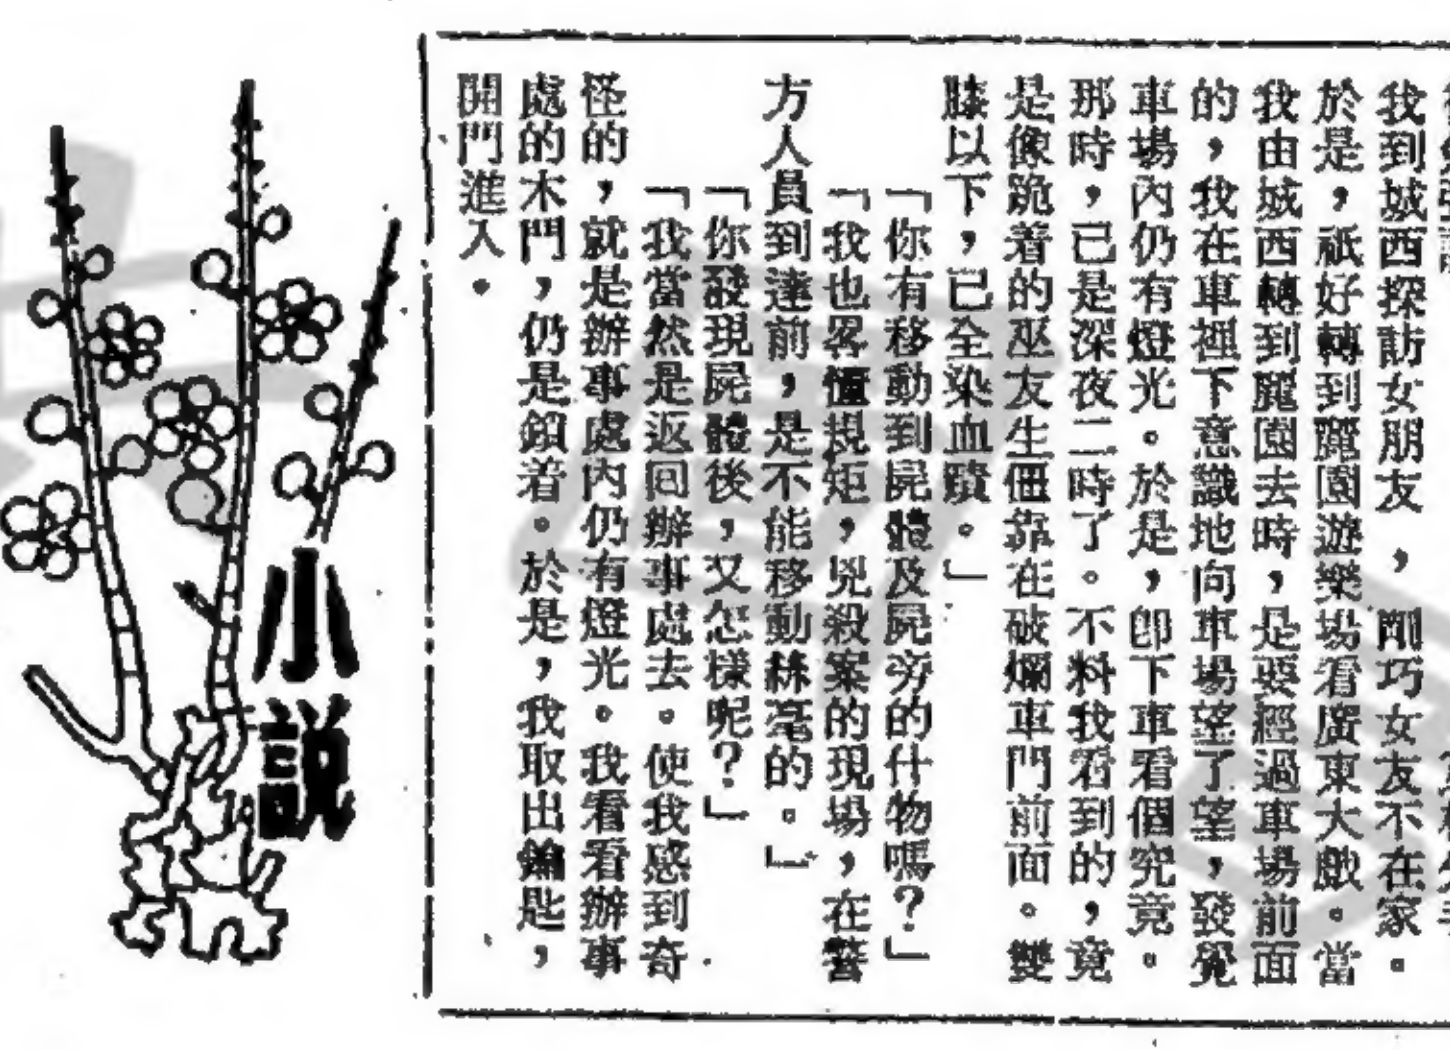 我到城西探訪女朋友，剛巧女友不在家。
於是，祇好轉到麗園遊樂場看廣東大戲。當
我由城西轉到麗園去時，是要經過車場前面
的，我在車裡下意識地向車場望了望，發覺
車場內仍有燈光。於是，卽下車看個究竟。
那時，已是深夜二時了。不料我看到的，竟
是像跪着的巫友生伷靠在破爛車門前面。雙
膝以下，已全染血蹟。」
「你有移動到屍體及屍旁的什物嗎？」
「我也畧懂規矩，兇殺案的現場，在警
方人員到達前，是不能移動絲毫的。」
「你發現屍體後，又怎樣呢？」
「我當然是返回辦事處去。使我感到奇
怪的，就是辦事處內仍有燈光。我看看辦事
處的木門，仍是鎖着。於是，我取出鑰匙，
開門進入。
小説